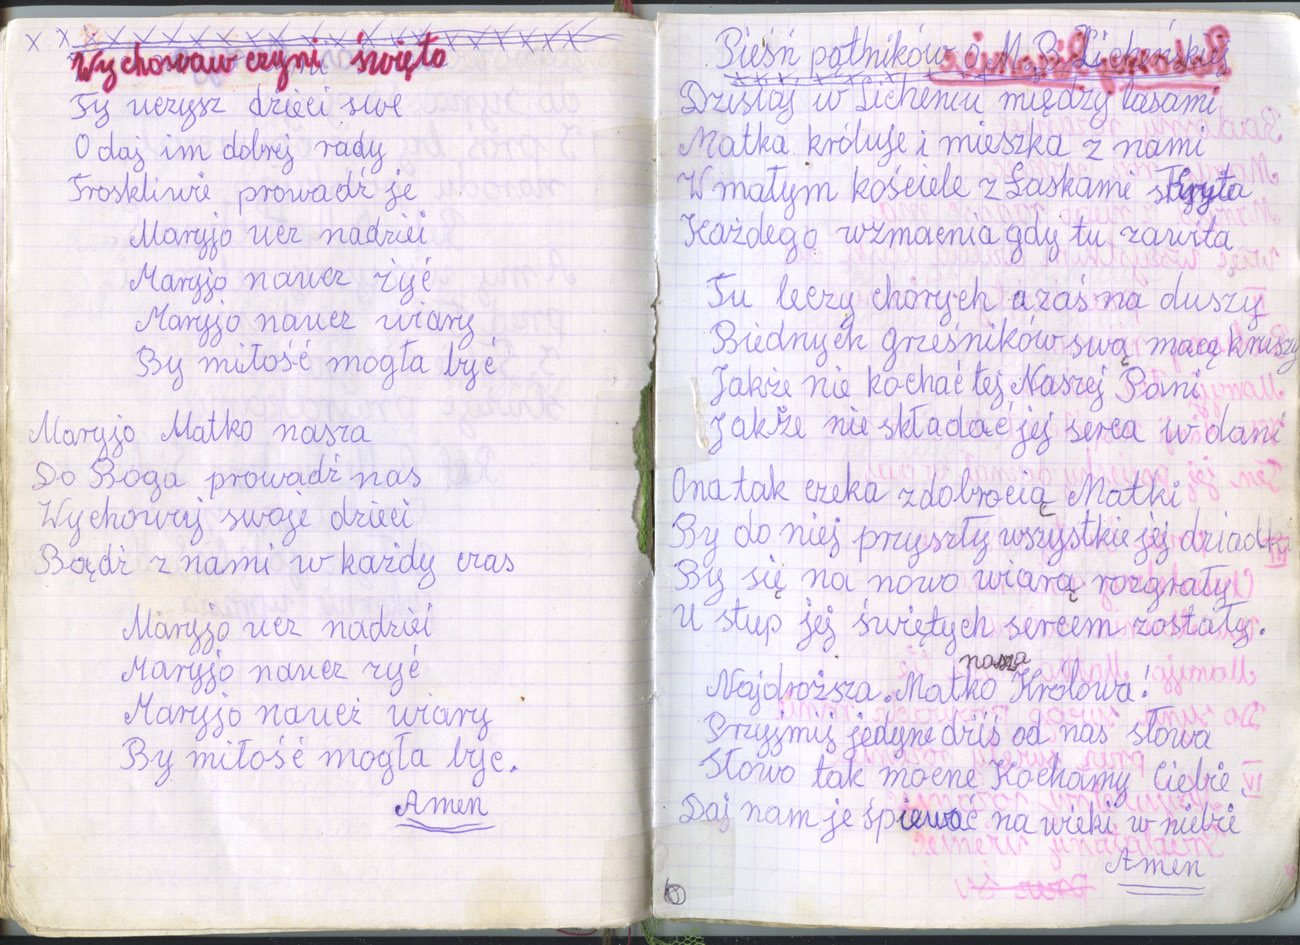 Wychowawczyni święta
Ty uczysz dzieci swe
O daj im dobrej rady
Troskliwie prowadź je
Maryjo ucz nadziei
Maryjo naucz żyć
Maryjo naucz wiary
By miłość mogła być
Maryjo Matko nasza
Do Boga prowadź nas
Wychowuj swoje dzieci
Bądź z nami w każdy czas
Maryjo ucz nadziei
Maryjo naucz żyć
Maryjo naucz wiary
By miłość mogła być.
Amen
Pieśń pątników o M. B. Licheńskiej
Dzisiaj w Licheniu między lasami
Matka króluje i mieszka z nami
W małym kościele z Łaskami skryta
Każdego wzmacnia gdy tu zawita
Tu leczy chorych a zaś na duszy
Biednych grzeszników swą mocą kruszy
Jakże nie kochać tej Naszej Pani
Jakże nie składać jej serca w dani
Ona tak czeka z dobrocią Matki
By do niej przyszły wszystkie jej dziadki
By się na nowo wiarą rozgrzały
U stup jej świętych sercem zostały.
nasza
Najdroższa Matko Królowa!
Przyjmij jedyne dziś od nas słowa
Słowo tak mocne Kochamy Ciebie
Daj nam je śpiewać na wieki w niebie
Amen